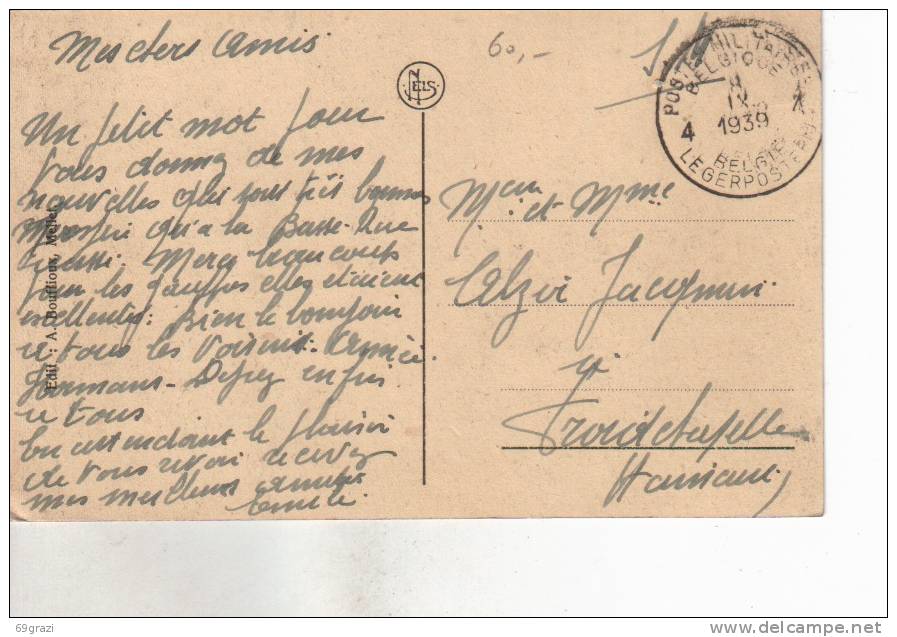 Mes chers Amis
60,-
S.M.
NELS
POSTES MILITAIRES
BELGIQUE
IX
1939
4 4
BELGIE
LEGERPOSTERIJ
Un petit mot pour
vous donner de mes
nouvelles qui sont très bonnes
qu'a la Basse-Rue
aussi. Merci beaucoup
pour les gauffres elles étaient
excellentes. Bien le bonjour
a tous les Voisins.
Hormans - Defrez enfin
a tous
En attendant le plaisir
de vous revoir recevez
mes meilleurs amitiés
Emile.
Edit. : A. Bouffioux, Mellet
Mr et Mme
Alzir Jacqmin
à
Froidchapelle
Hainaut
69grazi
www.delcampe.net